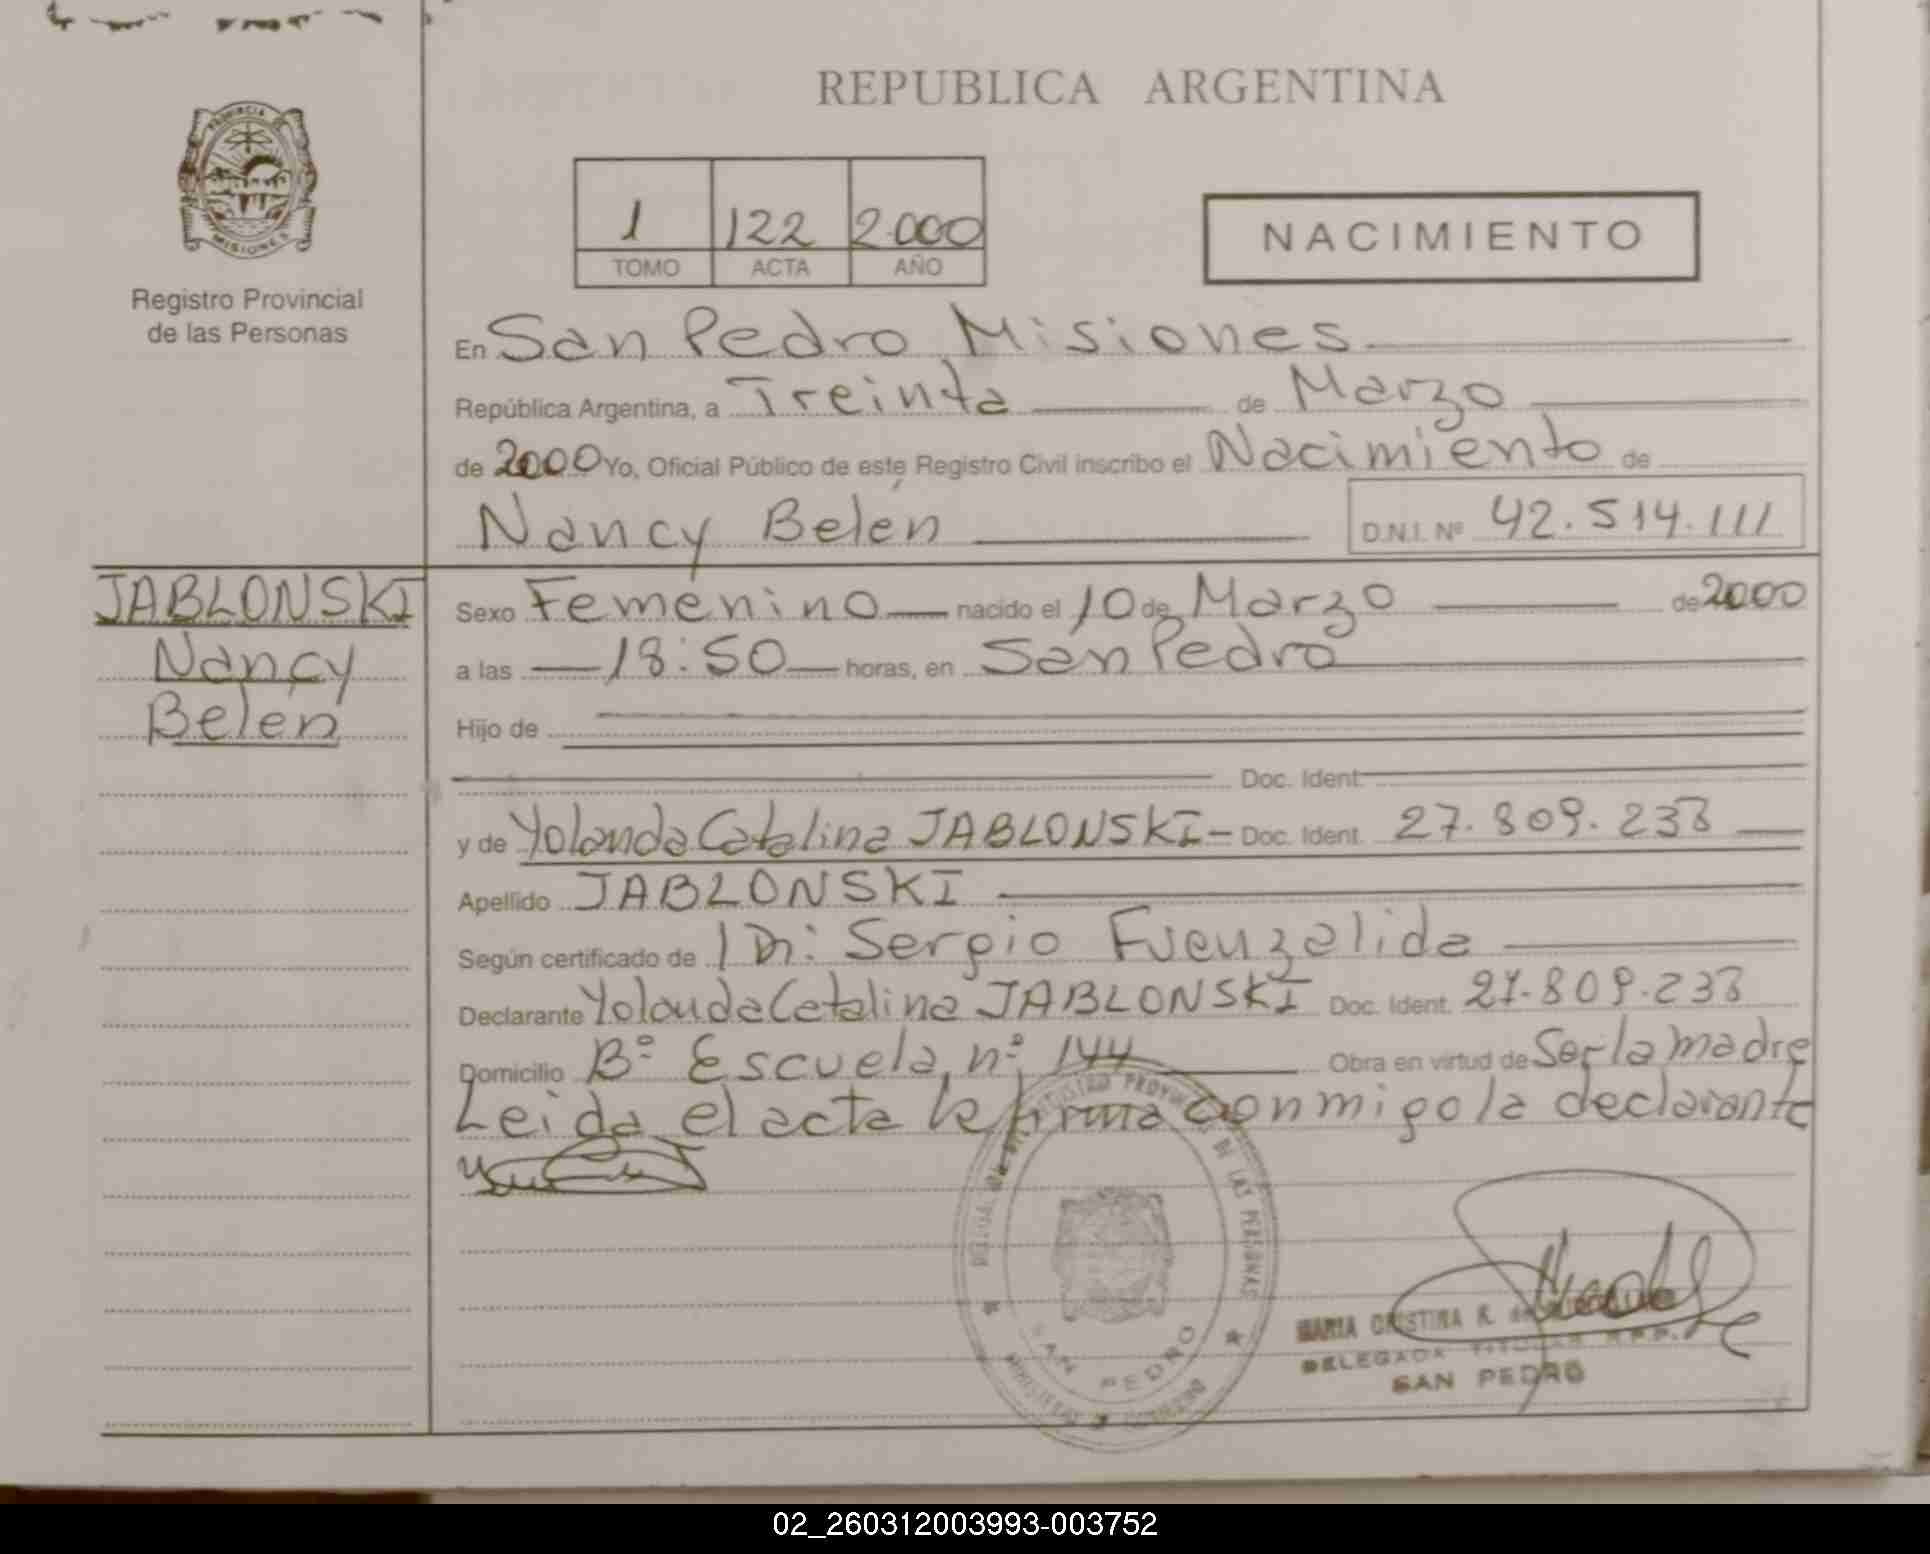 REPUBLICA ARGENTINA
PROVINCIA DE
MISIONES
Registro Provincial
de las Personas
1 122 2000
TOMO ACTA AÑO
NACIMIENTO
En San Pedro Misiones
República Argentina, a Treinta de Marzo
de 2000 Yo, Oficial Público de este Registro Civil inscribo el Nacimiento de
Nancy Belén D.N.I. Nº 42.514.111
JABLONSKI
Nancy
Belén
Sexo Femenino nacido el 10 de Marzo de 2000
a las 18:50 horas, en San Pedro
Hijo de
Doc. Ident.
y de Yolanda Catalina JABLONSKI Doc. Ident. 27.809.233
Apellido JABLONSKI
Según certificado de Dr: Sergio Fuenzalida
Declarante Yolanda Catalina JABLONSKI Doc. Ident. 27.809.233
Domicilio Bº Escuela nº 144 Obra en virtud de Ser la madre
Leida el acta la firma conmigo la declarante
REGISTRO PROVINCIAL DE LAS PERSONAS
SAN PEDRO
MINISTERIO DE GOBIERNO
MARIA CRISTINA R. de
DELEGADA TITULAR R.P.P.
SAN PEDRO
02_260312003993-003752